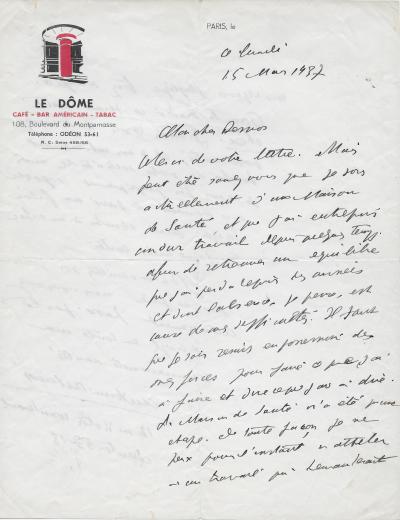 PARIS, le
ce lundi
15 Mars 1937
LE DÔME
CAFÉ - BAR AMÉRICAIN - TABAC
108, Boulevard du Montparnasse
Téléphone : ODÉON 53-61
R. C. Seine
Mon cher Desnos
Merci de votre lettre. Mais
peut être savez vous que je sors
actuellement d'une Maison
de Santé et que j'ai entrepris
un dur travail depuis quelques temps
afin de retrouver un équilibre
que j'ai perdu depuis des années
et dont l'absence, je pense, est
cause de mes difficultés. Il faut
que je sois remis en possession de
mes forces pour faire ce que j'ai
à faire et dire ce que j'ai à dire.
La Maison de Santé n'a été qu'une
étape. De toute façon je ne
peux pour l'instant, m'atteler
à un travail qui demanderait